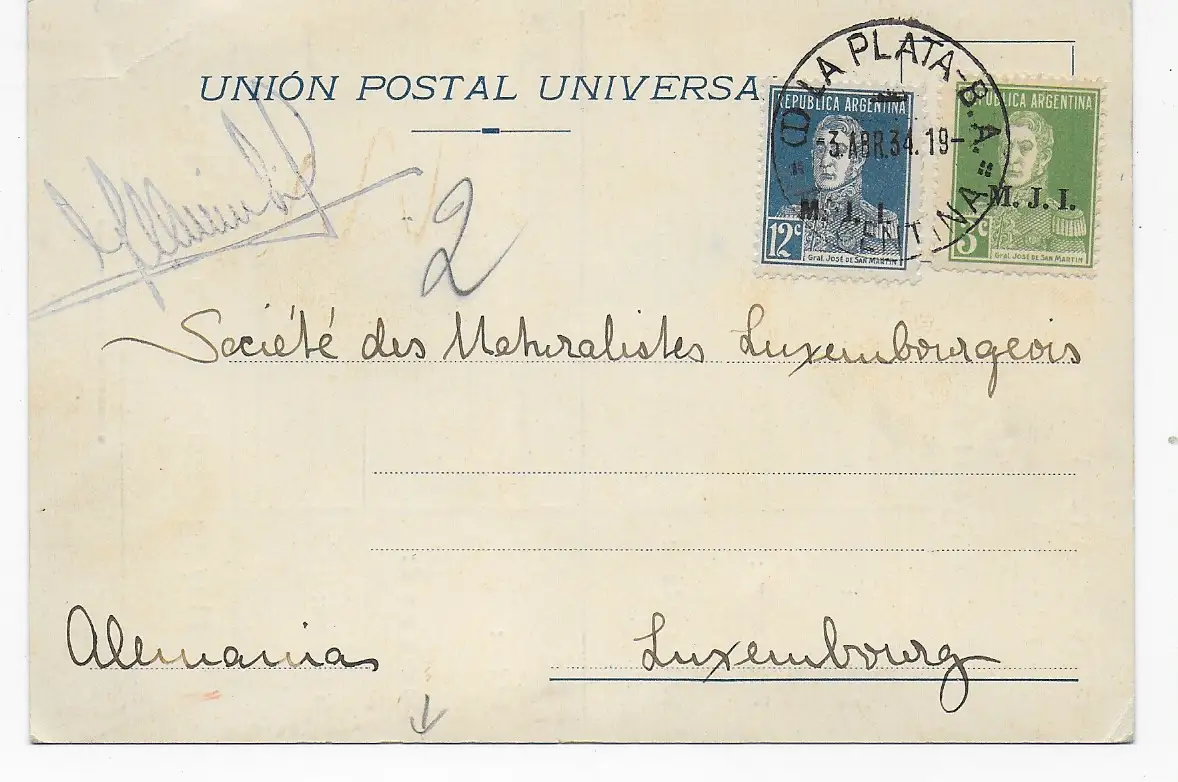 UNIÓN POSTAL UNIVERSA
LA PLATA - B.A.
(1)
3 ABR. 34. 19-
ENTINA
REPUBLICA ARGENTINA
M. J. I.
12c
Gral. JOSÉ DE SAN MARTIN
REPUBLICA ARGENTINA
M. J. I.
3c
Gral. JOSÉ DE SAN MARTIN
2
Société des Naturalistes Luxembourgeois
Alemania
Luxembourg